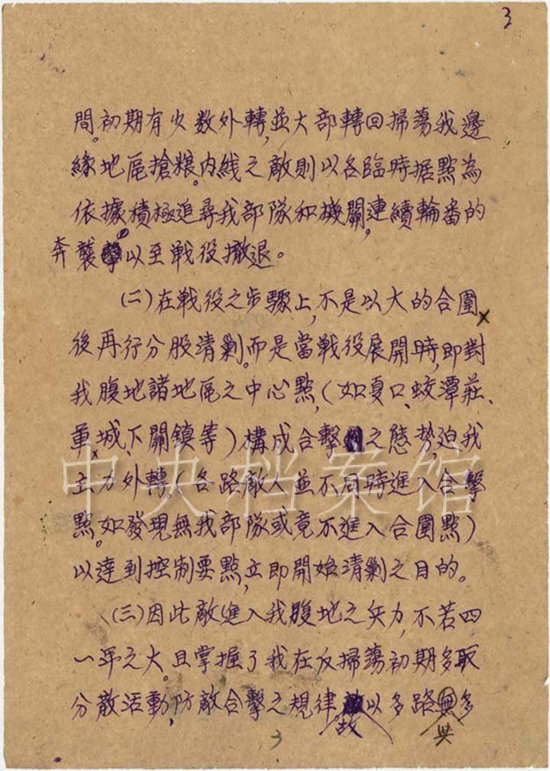 3
問。初期有少数外轉,並大部轉回掃蕩我邊
緣地區搶粮。内线之敵則以各臨時据點為
依據積極追尋我部隊和機關,連續輪番的
奔襲以至戰役撤退。
(二)在戰役之步驟上,不是以大的合圍
後再行分股清剿。而是當戰役展開時,即對
我腹地諸地區之中心點,(如夏口、蚊潭莊、
軍城、下關鎮等)構成合擊之態势,迫我
主力外轉(各路敵人並不同時進入合擊
點。如發現無我部隊或竟不進入合圍點)
以達到控制要點,立即開始清剿之目的。
(三)因此敵進入我腹地之兵力,不若四
一年之大。且掌握了我在反掃蕩初期多取
分散活動,防敵合擊之規律,故以多路與多
3
中央档案馆